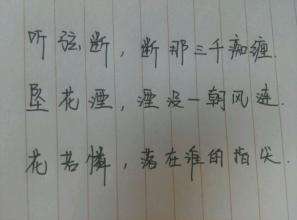 听弦断，断那三千痴缠.
坠花湮，湮没一朝风涟.
花若憐，落在谁的指尖.